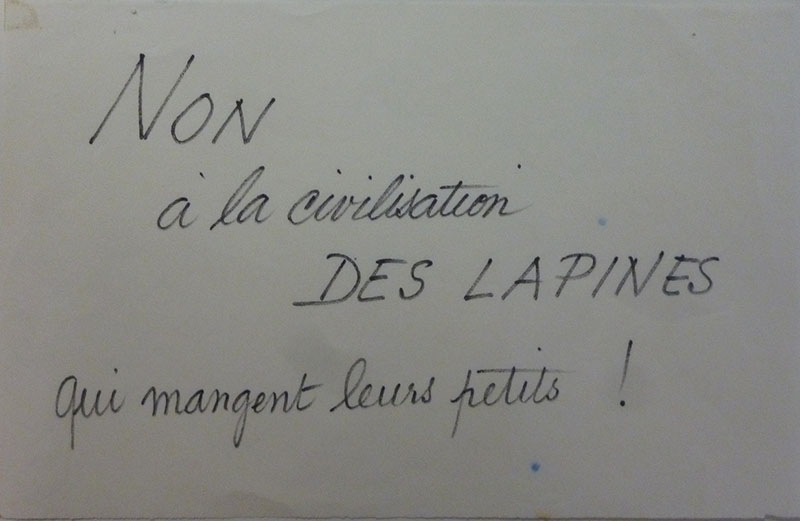 NON
à la civilisation
DES LAPINES
qui mangent leurs petits !